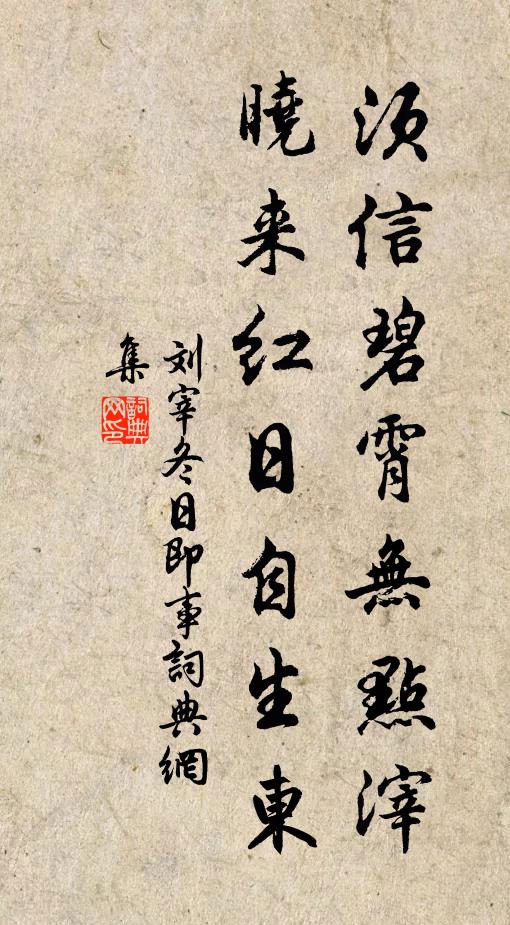 须信碧霄無點滓
曉来红日自生東
刘宰冬日即事詞典網
集
詞典
网印